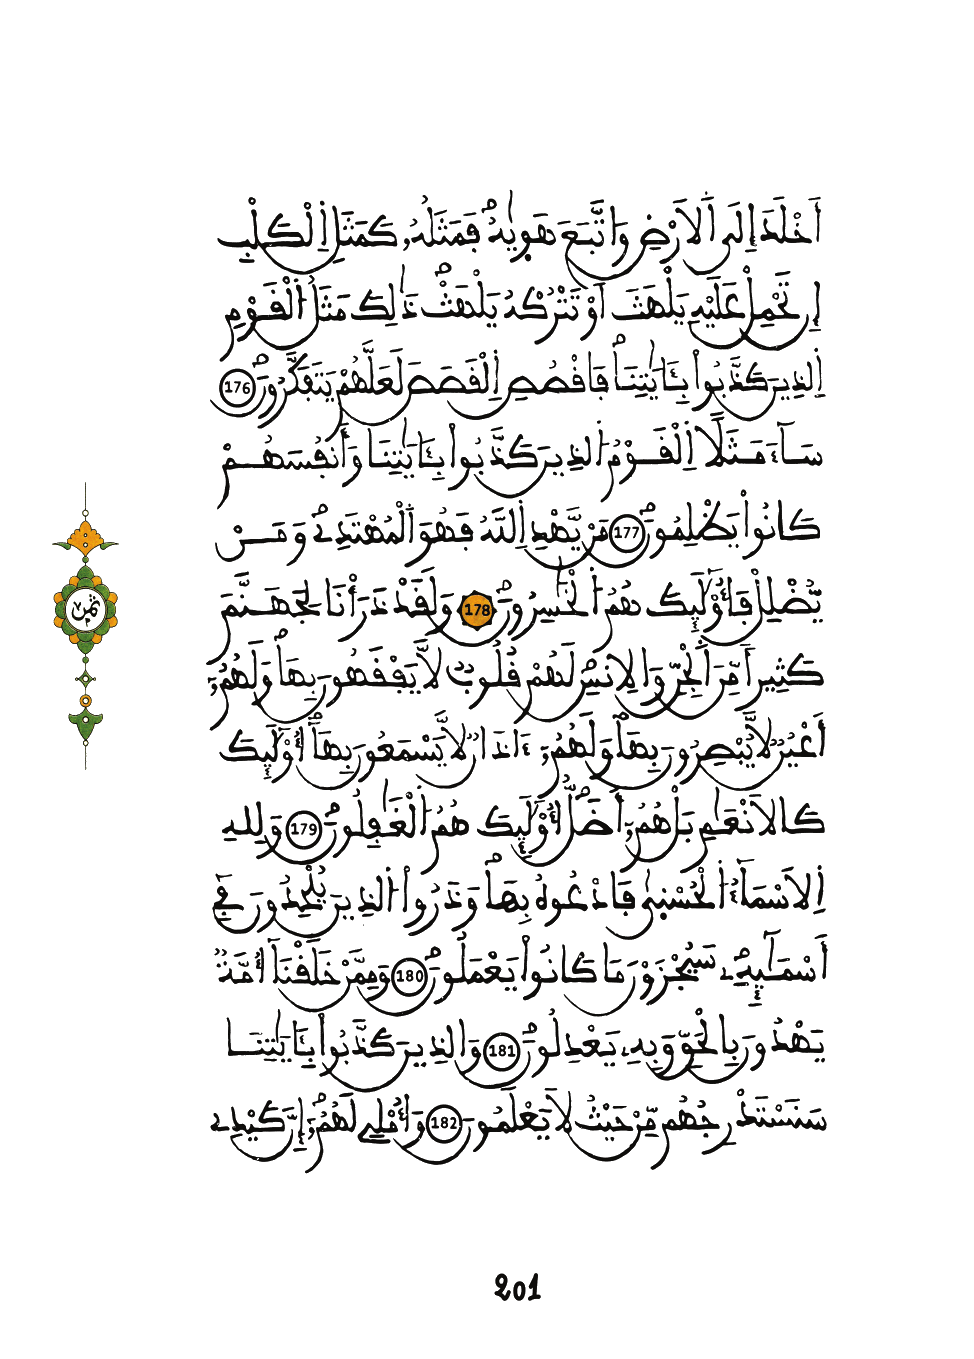 أَخْلَدَ إِلَى اَ۬لَارْضِ وَاتَّبَعَ هَو۪يٰهُۖ فَمَثَلُهُۥ كَمَثَلِ اِ۬لْكَلْبِ
إِن تَحْمِلْ عَلَيْهِ يَلْهَثَ اَوْ تَتْرُكْهُ يَلْهَثْۖ ذَّٰلِكَ مَثَلُ اُ۬لْقَوْمِ
اِ۬لذِينَ كَذَّبُواْ بِـَٔايَٰتِنَاۖ فَاقْصُصِ اِ۬لْقَصَصَ لَعَلَّهُمْ يَتَفَكَّرُونَۖ 176
سَآءَ مَثَلاً اِ۬لْقَوْمُ اُ۬لذِينَ كَذَّبُواْ بِـَٔايَٰتِنَا وَأَنفُسَهُمْ
كَانُواْ يَظْلِمُونَۖ 177 مَنْ يَّهْدِ اِ۬للَّهُ فَهُوَ اَ۬لْمُهْتَدِےۖ وَمَنْ
يُّضْلِلْ فَأُوْلَٰٓئِكَ هُمُ اُ۬لْخَٰسِرُونَۖ 178 وَلَقَدْ ذَرَأْنَا لِجَهَنَّمَ
كَثِيراً مِّنَ اَ۬لْجِنِّ وَالِانسِ لَهُمْ قُلُوبٞ لَّا يَفْقَهُونَ بِهَاۖ وَلَهُمُۥٓ
أَعْيُنٞ لَّا يُبْصِرُونَ بِهَاۖ وَلَهُمُۥٓ ءَاذَانٞ لَّا يَسْمَعُونَ بِهَآۖ أُوْلَٰٓئِكَ
كَالَانْعَٰمِ بَلْ هُمُۥٓ أَضَلُّۖ أُوْلَٰٓئِكَ هُمُ اُ۬لْغَٰفِلُونَۖ 179 وَلِلهِ
اِ۬لَاسْمَآءُ اُ۬لْحُسْن۪يٰ فَادْعُوهُ بِهَاۖ وَذَرُواْ اُ۬لذِينَ يُلْحِدُونَ فِےٓ
أَسْمَٰٓئِهِۦۖ سَيُجْزَوْنَ مَا كَانُواْ يَعْمَلُونَۖ 180 وَمِمَّنْ خَلَقْنَآ أُمَّةٞ
يَهْدُونَ بِالْحَقِّ وَبِهِۦ يَعْدِلُونَۖ 181 وَالذِينَ كَذَّبُواْ بِـَٔايَٰتِنَا
سَنَسْتَدْرِجُهُم مِّنْ حَيْثُ لَا يَعْلَمُونَ 182 وَأُمْلِے لَهُمُۥٓ إِنَّ كَيْدِے
ثمن
201